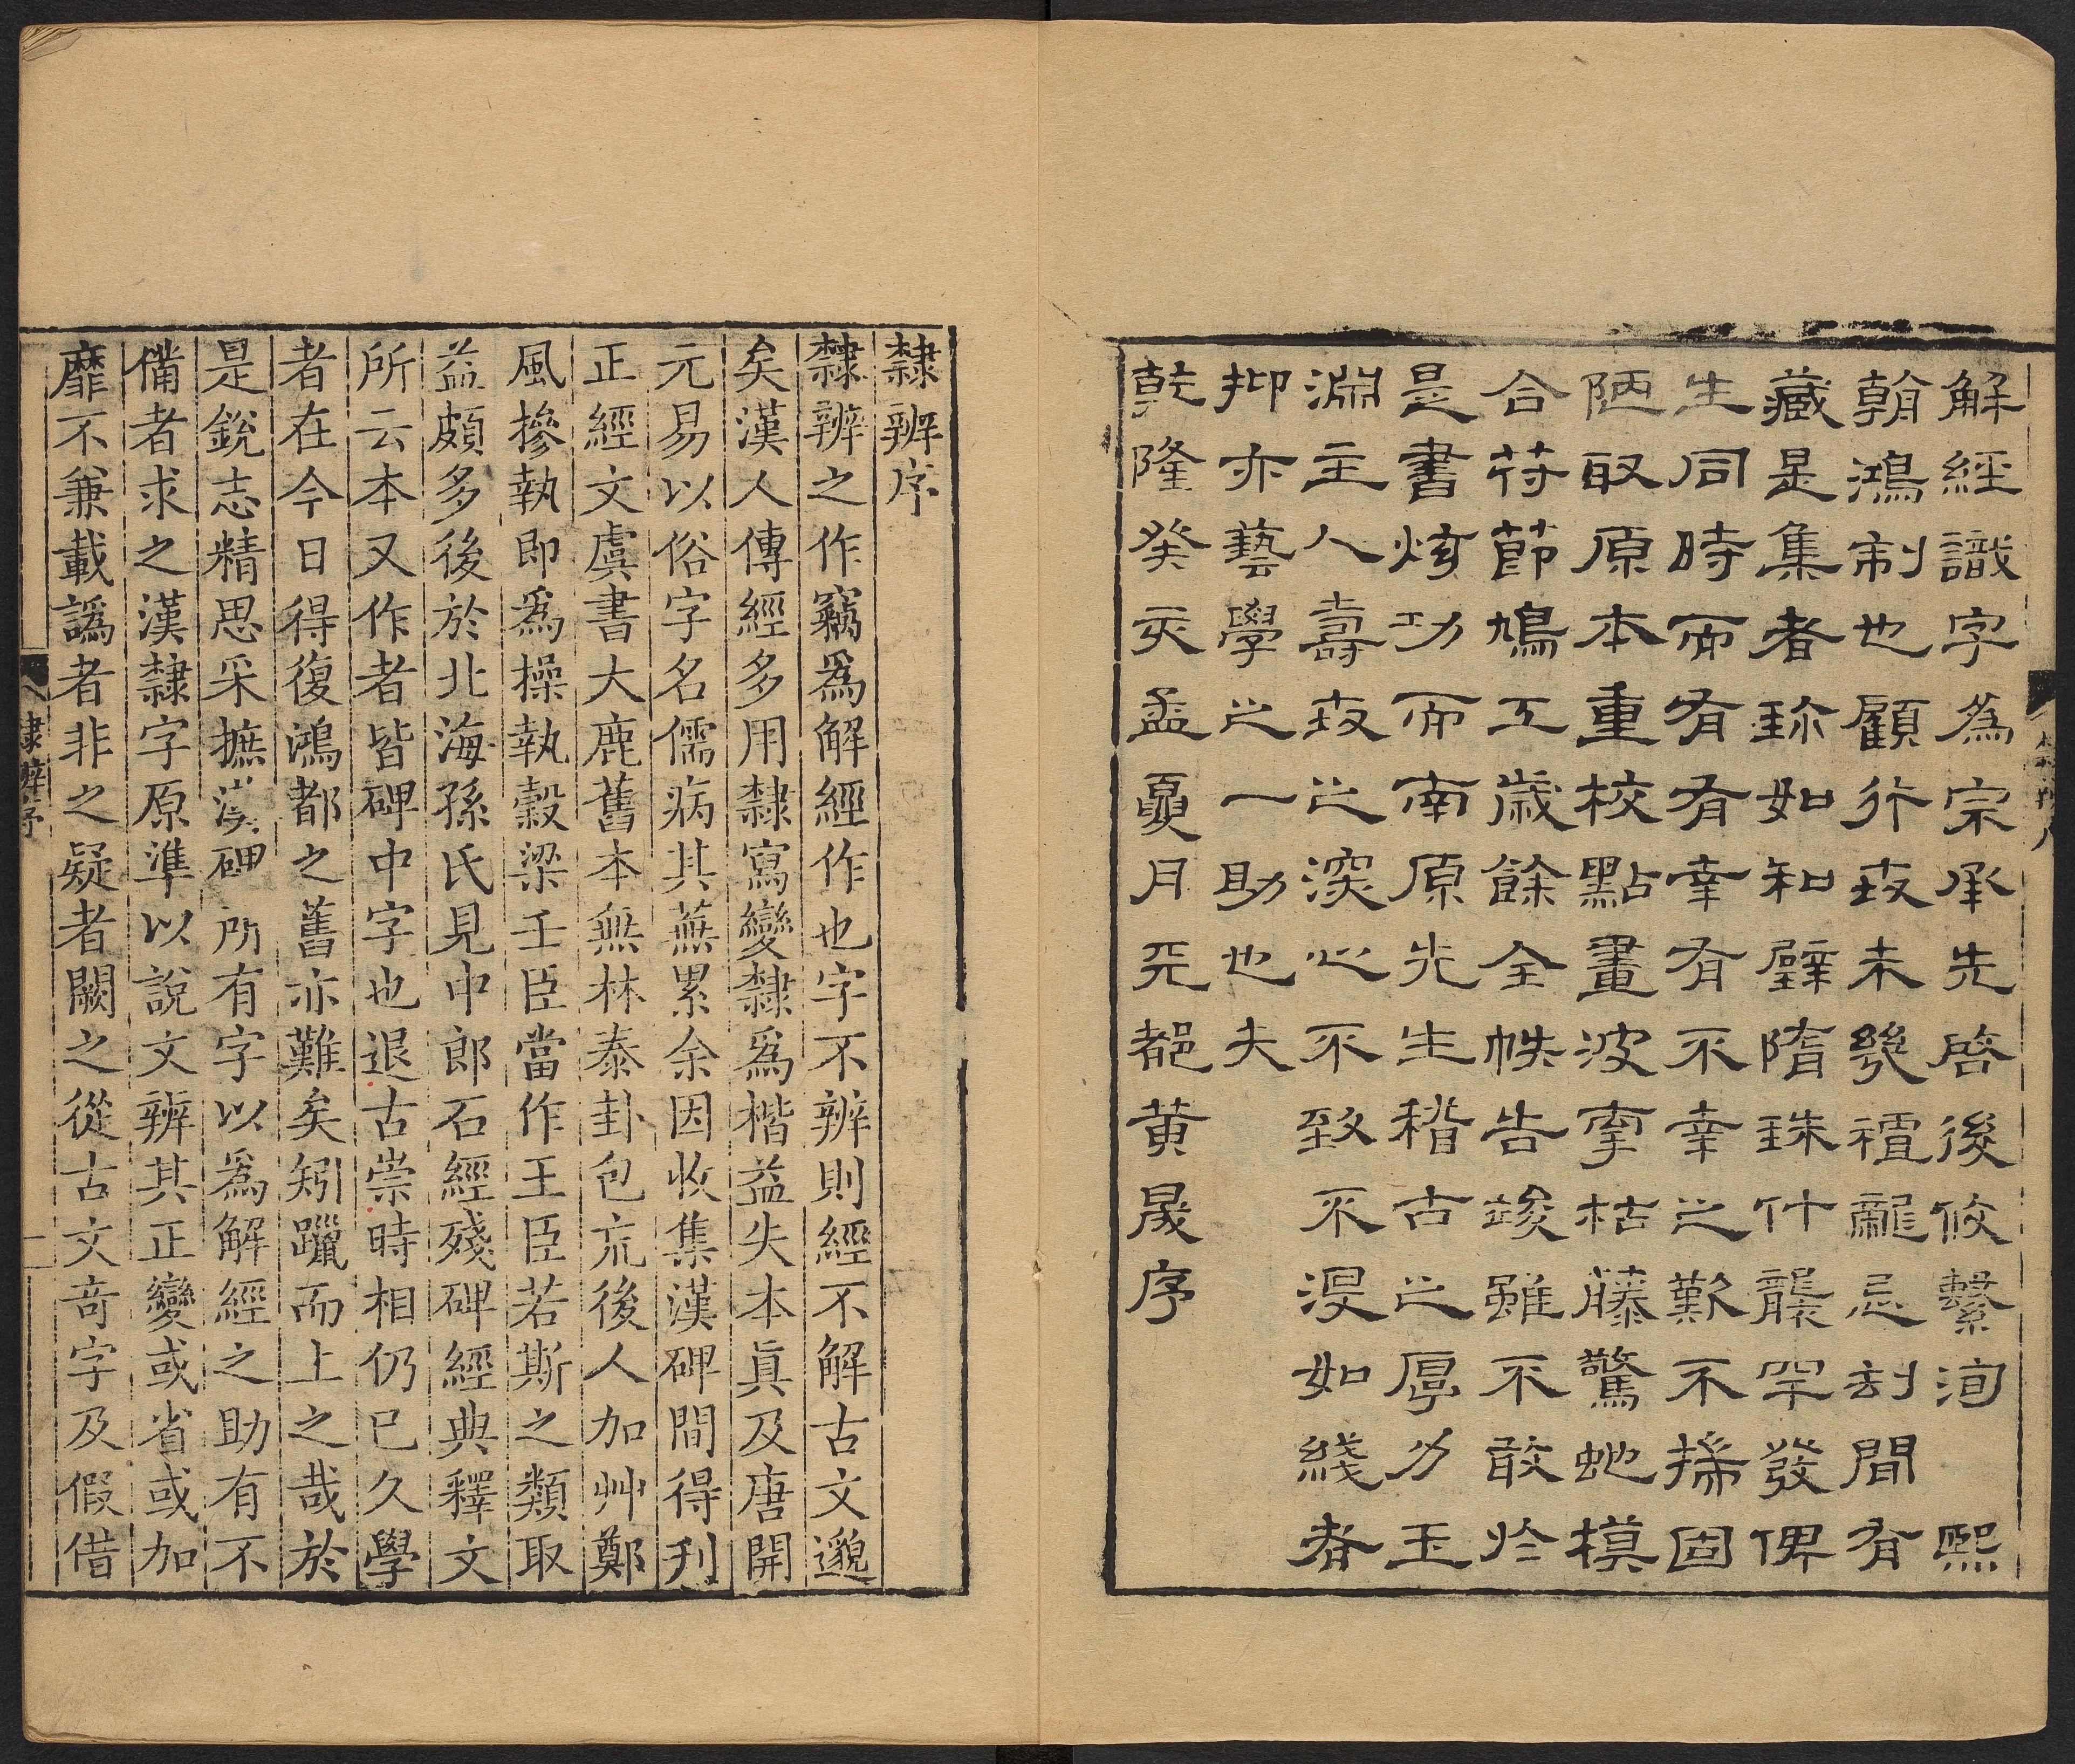 解經識字爲宗承先啓後攸繫洵 熙
朝鴻制也顧行世未幾䄠龍忌刻間有
藏是集者珍如和璧隋珠什襲罕發俾
生同時而有有幸有不幸之歎不揣固
陋取原本重校點畫波挐枯藤驚蛇模
合符節鳩工歲餘全帙告竣雖不敢於
是書炫功而南原先生稽古之厚力玉
淵主人壽世之深心不致不浸如綫者
抑亦藝學之一助也夫
乾隆癸亥孟夏月天都黄晟序
隸辨序
隸辨之作竊爲解經作也字不辨則經不解古文邈
矣漢人傳經多用隸寫變隸爲楷益失本眞及唐開
元易以俗字名儒病其蕪累余因收集漢碑間得刋
正經文虞書大鹿舊本無林泰卦包㐬後人加艸鄭
風摻執即爲操執穀梁壬臣當作王臣若斯之類取
益頗多後於北海孫氏見中郎石經殘碑經典釋文
所云本又作者皆碑中字也退古崇時相仍已久學
者在今日得復鴻都之舊亦難矣矧躐而上之哉於
是銳志精思采摭漢碑所有字以爲解經之助有不
備者求之漢隸字原準以說文辨其正變或省或加
靡不兼載譌者非之疑者闕之從古文奇字及假借
隸辨序
一